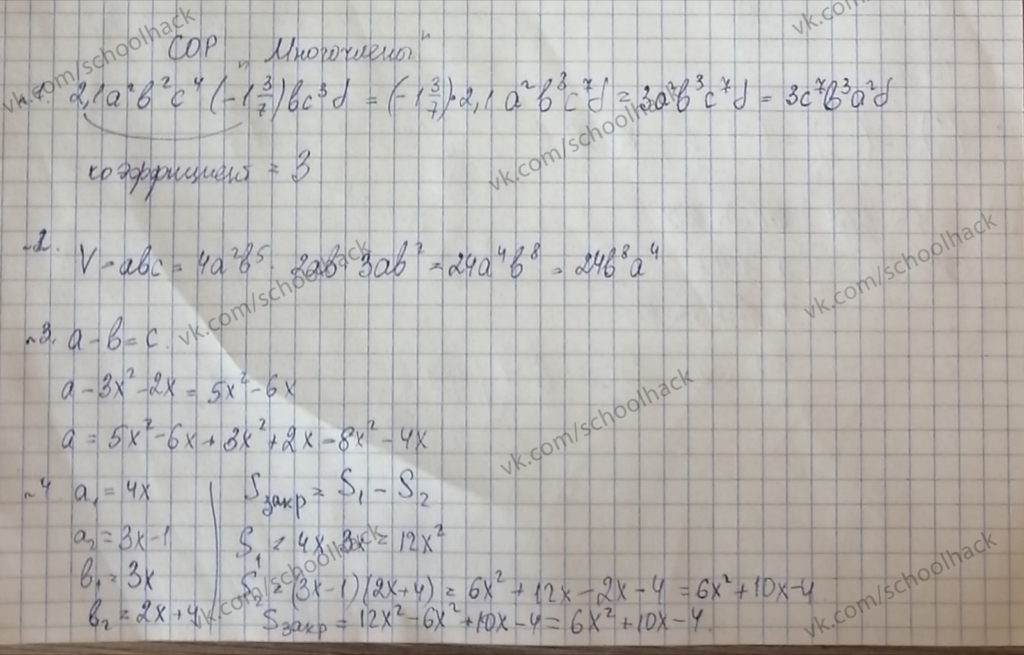 СОР „Многочлены"
№1. 2,1a²b²c⁴(-1 3/7)bc³d = (-1 3/7)·2,1a²b³c⁷d = 3a²b³c⁷d = 3c⁷b³a²d
коэффициент = 3
№2. V = abc = 4a²b⁵ · 2ab · 3ab² = 24a⁴b⁸ = 24b⁸a⁴
№3. a - b = c.
a - 3x² - 2x = 5x² - 6x
a = 5x² - 6x + 3x² + 2x = 8x² - 4x
№4 a₁ = 4x
a₂ = 3x-1
b₁ = 3x
b₂ = 2x+4
Sзакр = S₁ - S₂
S₁ = 4x · 3x = 12x²
S₂ = (3x-1)(2x+4) = 6x² + 12x - 2x - 4 = 6x² + 10x - 4
Sзакр = 12x² - 6x² + 10x - 4 = 6x² + 10x - 4.
vk.com/schoolhack
vk.com/schoolhack
vk.com/schoolhack
vk.com/schoolhack
vk.com/schoolhack
vk.com/schoolhack
vk.com/schoolhack
vk.com/schoolhack